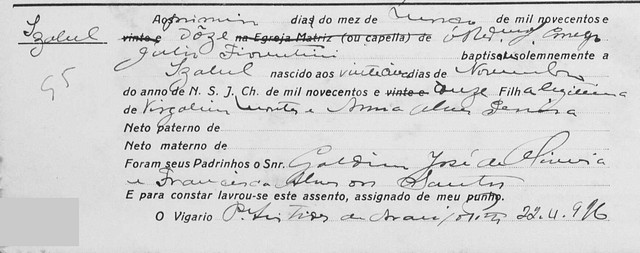 Izabel
Aos primeiro dias do mez de Junho de mil novecentos e
vinte e Dôze na Egreja Matriz (ou capella) de o Red.
Julio Fiorentini baptisou solemnemente a
Izabel nascido aos vinte dias de Novembro
do anno de N. S. J. Ch. de mil novecentos e vinte e onze Filha legitima
de Virgolino Montes e Anna Alves Pereira
Neto paterno de
Neto materno de
Foram seus Padrinhos o Snr. Galdino José de Oliveira
e Francisca Alves dos Santos
E para constar lavrou-se este assento, assignado de meu punho.
O Vigario P. de Araujo 22.4.926
95